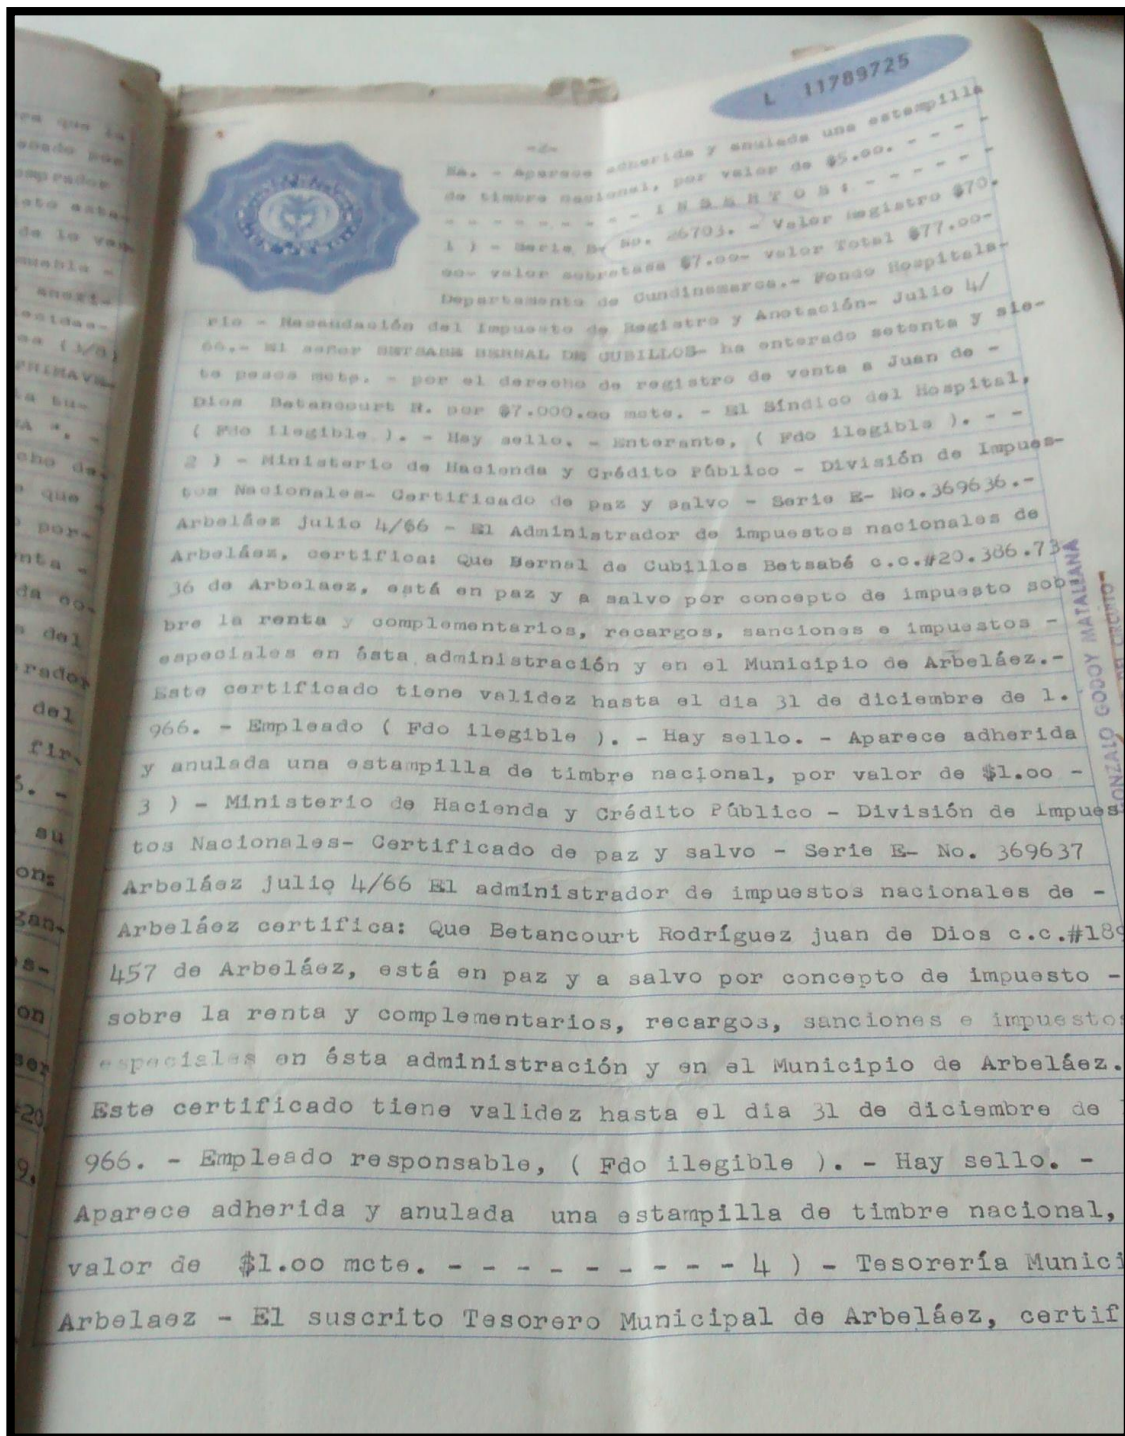 L 11789725
-2-
EA. - Aparece adherida y anulada una estampilla
de timbre nacional, por valor de $5.00. - - - -
- - - - - - - - - I N S E R T O S : - - - - - -
1 ) - Serie B- No. 26703. - Valor Registro $70.
oo- valor sobretasa $7.00- valor Total $77.00-
Departamento de Cundinamarca.- Fondo Hospitala-
rio - Recaudación del Impuesto de Registro y Anotación- Julio 4/
66.- El señor BETSABE BERNAL DE CUBILLOS- ha enterado setenta y sie-
te pesos mcte. - por el derecho de registro de venta a Juan de -
Dios Betancourt R. por $7.000.oo mcte. - El Síndico del Hospital,
( Fdo ilegible ). - Hay sello. - Enterante, ( Fdo ilegible ). - -
2 ) - Ministerio de Hacienda y Crédito Público - División de Impues-
tos Nacionales- Certificado de paz y salvo - Serie E- No.369636.-
Arbeláez julio 4/66 - El Administrador de impuestos nacionales de
Arbeláez, certifica: Que Bernal de Cubillos Betsabé c.c.#20.386.73
36 de Arbelaez, está en paz y a salvo por concepto de impuesto sob
bre la renta y complementarios, recargos, sanciones e impuestos -
especiales en ésta administración y en el Municipio de Arbeláez.-
Este certificado tiene validez hasta el dia 31 de diciembre de 1.
966. - Empleado ( Fdo ilegible ). - Hay sello. - Aparece adherida
y anulada una estampilla de timbre nacional, por valor de $1.oo -
3 ) - Ministerio de Hacienda y Crédito Público - División de Impues
tos Nacionales- Certificado de paz y salvo - Serie E- No. 369637
Arbeláez julio 4/66 El administrador de impuestos nacionales de -
Arbeláez certifica: Que Betancourt Rodríguez juan de Dios c.c.#189
457 de Arbeláez, está en paz y a salvo por concepto de impuesto -
sobre la renta y complementarios, recargos, sanciones e impuestos
especiales en ésta administración y en el Municipio de Arbeláez.
Este certificado tiene validez hasta el dia 31 de diciembre de
966. - Empleado responsable, ( Fdo ilegible ). - Hay sello. -
Aparece adherida y anulada una estampilla de timbre nacional,
valor de $1.oo mcte. - - - - - - - - - - 4 ) - Tesorería Munici
Arbelaez - El suscrito Tesorero Municipal de Arbeláez, certif
GONZALO GODOY MATALLANA